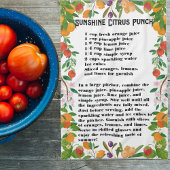 Sunshine Citrus Punch
1 cup fresh orange juice
1 cup pineapple juice
1/2 cup lemon juice
1/4 cup lime juice
1/4 cup simple syrup
2 cups sparkling water
Ice cubes
Sliced oranges, lemons,
and limes for garnish
In a large pitcher, combine the
orange juice, pineapple juice,
lemon juice, lime juice, and
simple syrup. Stir well until all
the ingredients are fully mixed.
Just before serving, add the
sparkling water and ice cubes to
the pitcher. Garnish with slices
of oranges, lemons, and limes.
Serve in chilled glasses and
enjoy the refreshing taste of
summer!